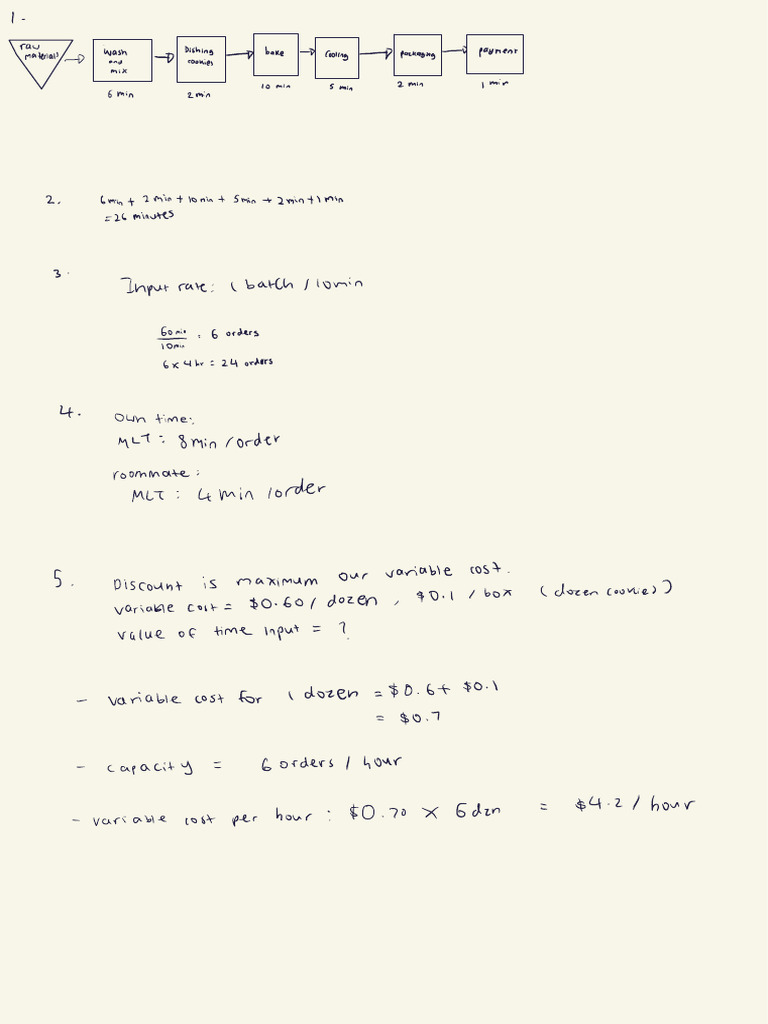 1-
raw materials → wash and mix → Dishing cookies → bake → cooling → packaging → payment
6 min 2 min 10 min 5 min 2 min 1 min
2. 6min + 2 min + 10 min + 5 min + 2 min + 1 min
= 26 minutes
3. Input rate: 1 batch / 10 min
60 min / 10 min = 6 orders
6 x 4 hr = 24 orders
4. Own time:
MLT: 8 min / order
roommate:
MLT: 4 min / order
5. Discount is maximum our variable cost.
variable cost = $0.60 / dozen, $0.1 / box (dozen cookies)
value of time input = ?
- variable cost for 1 dozen = $0.6 + $0.1
= $0.7
- capacity = 6 orders / hour
- variable cost per hour: $0.70 x 6 dzn = $4.2 / hour